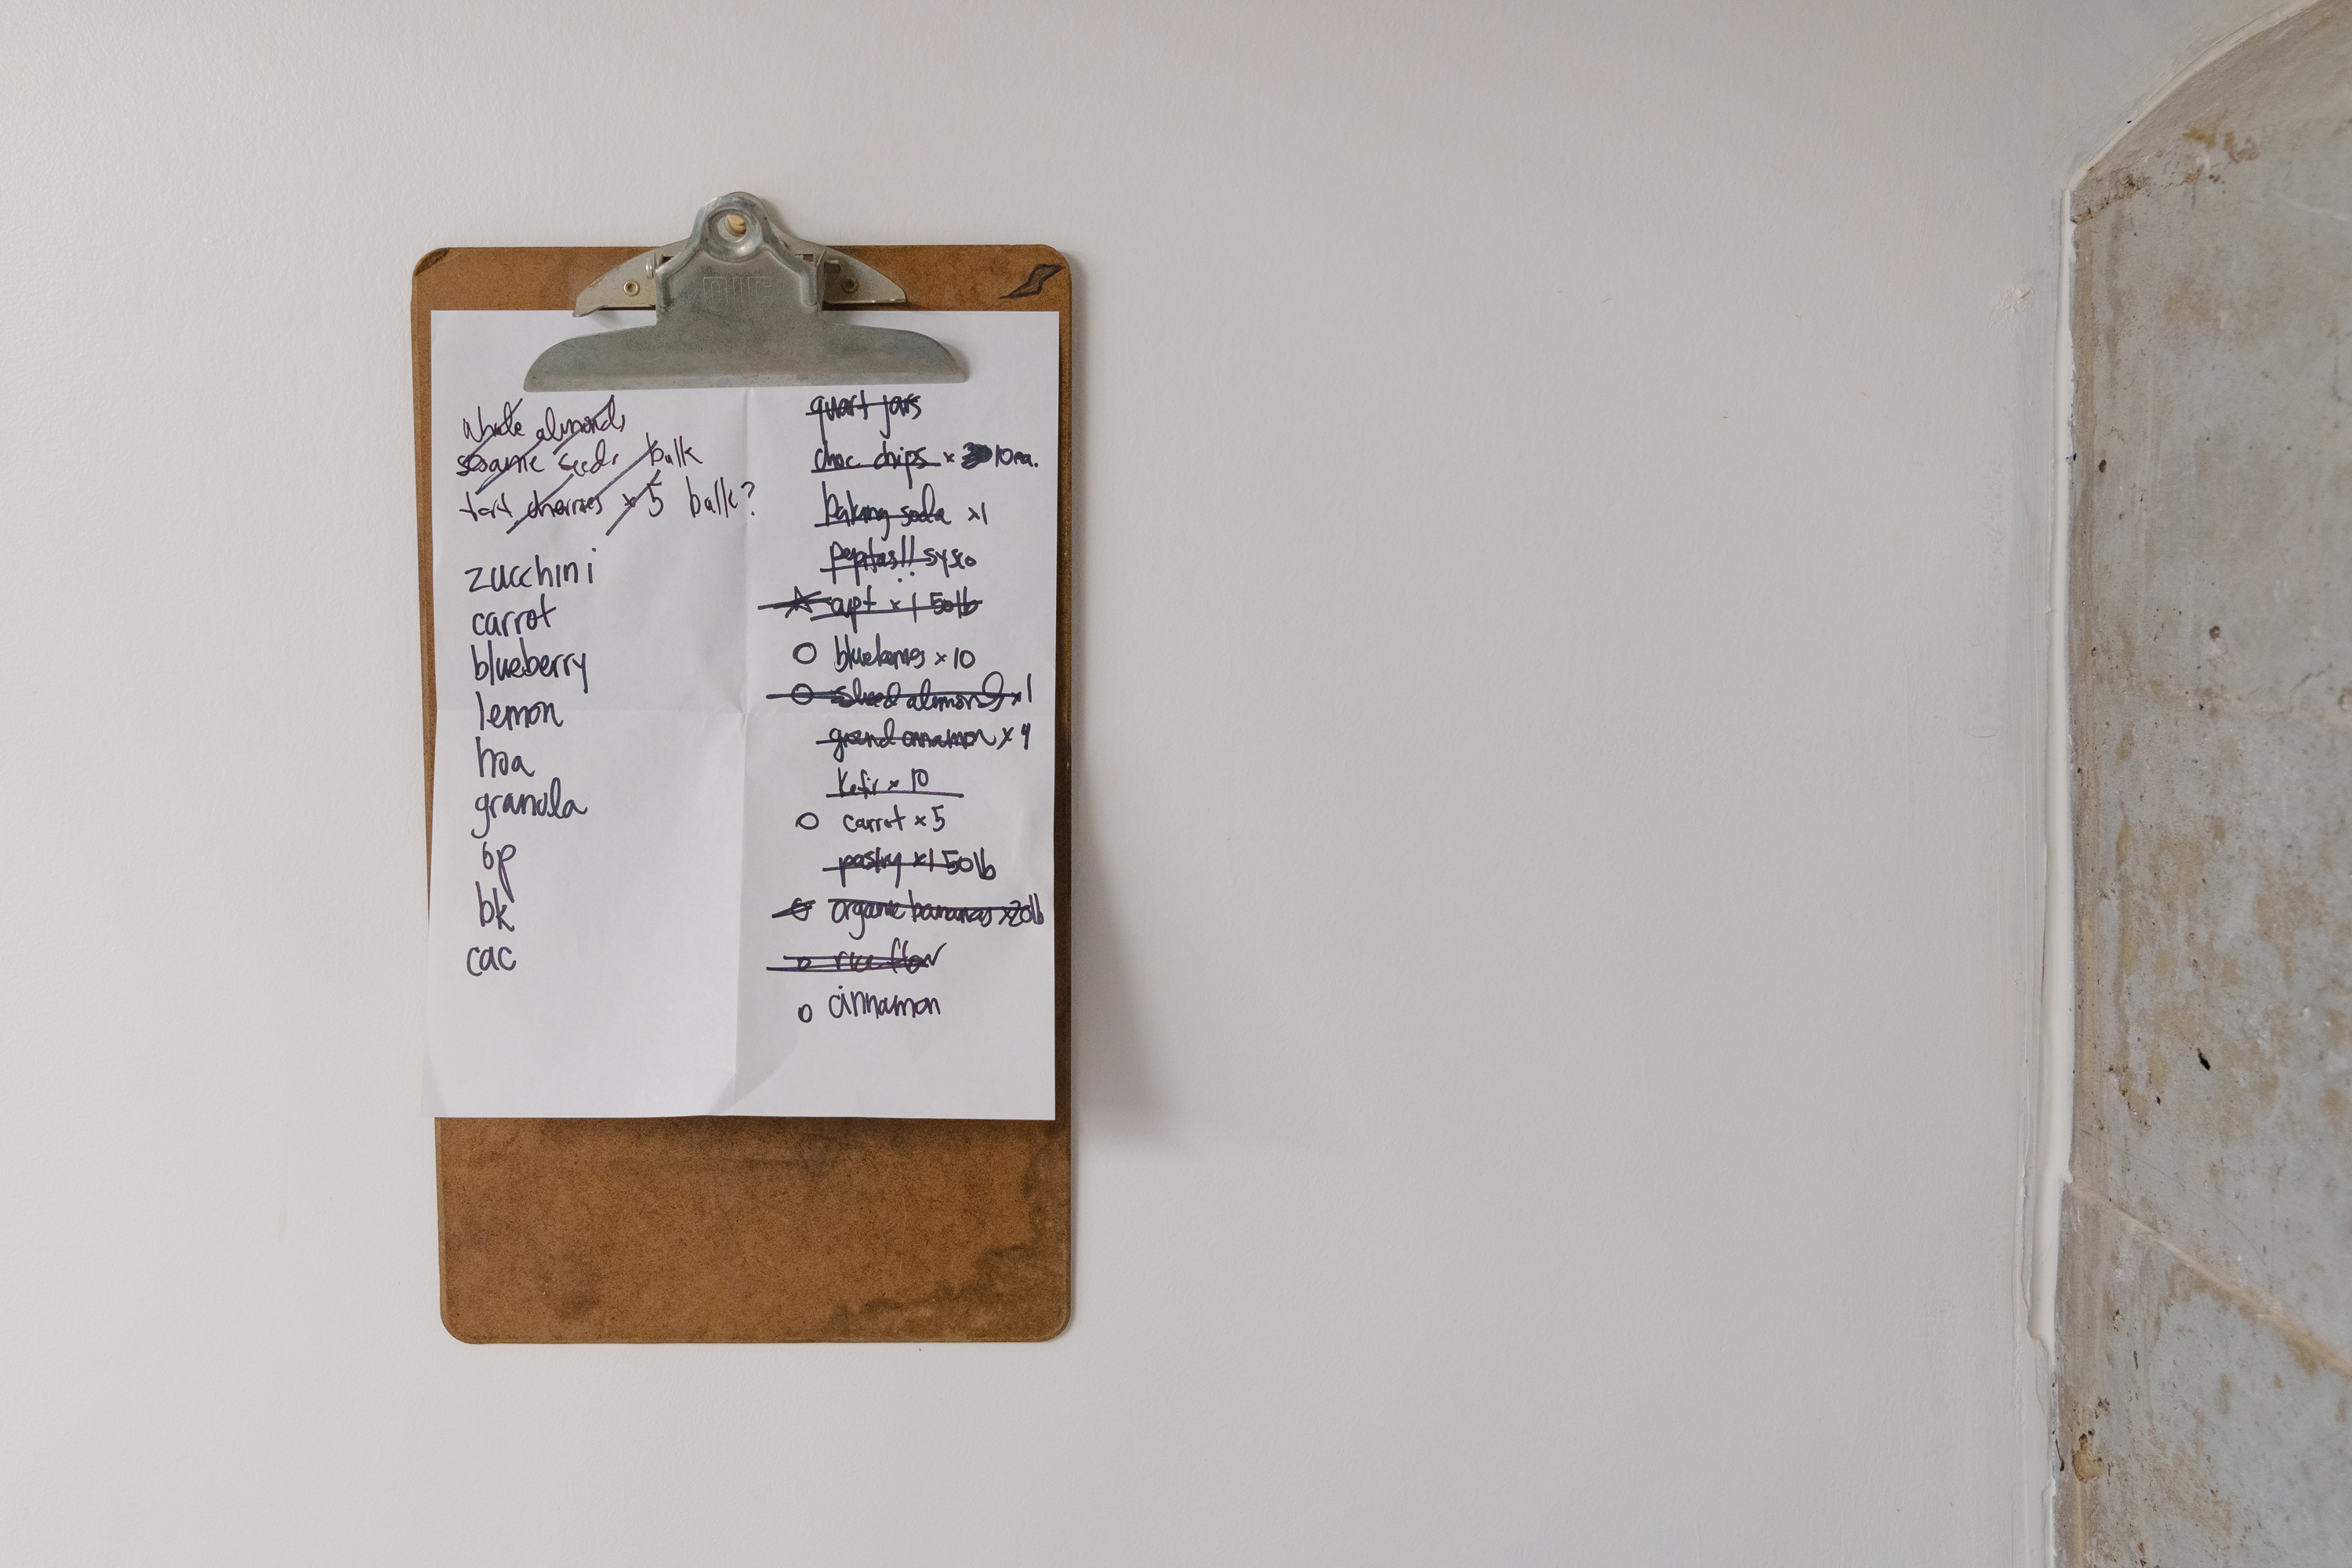 whole almonds
sesame seeds bulk
tart cherries x 5 bulk?
zucchini
carrot
blueberry
lemon
granola
bp
bk
cac
quart jars
choc chips x 10ea.
baking soda x1
pepitas!! sysco
apt x 1 50lb
blueberries x 10
sliced almonds x1
ground cinnamon x 4
kefir x 10
carrot x 5
pastry x1 50lb
organic bananas x20lb
rice flour
cinnamon